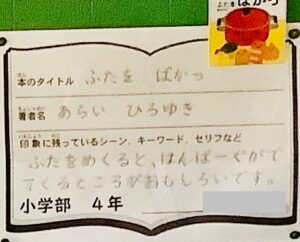 ふたを ぱかっ
本のタイトル ふたを ぱかっ
著者名 あらい ひろゆき
印象に残っているシーン、キーワード、セリフなど
ふたをめくると、はんばーぐがで
てくるところがおもしろいです。
小学部 4年